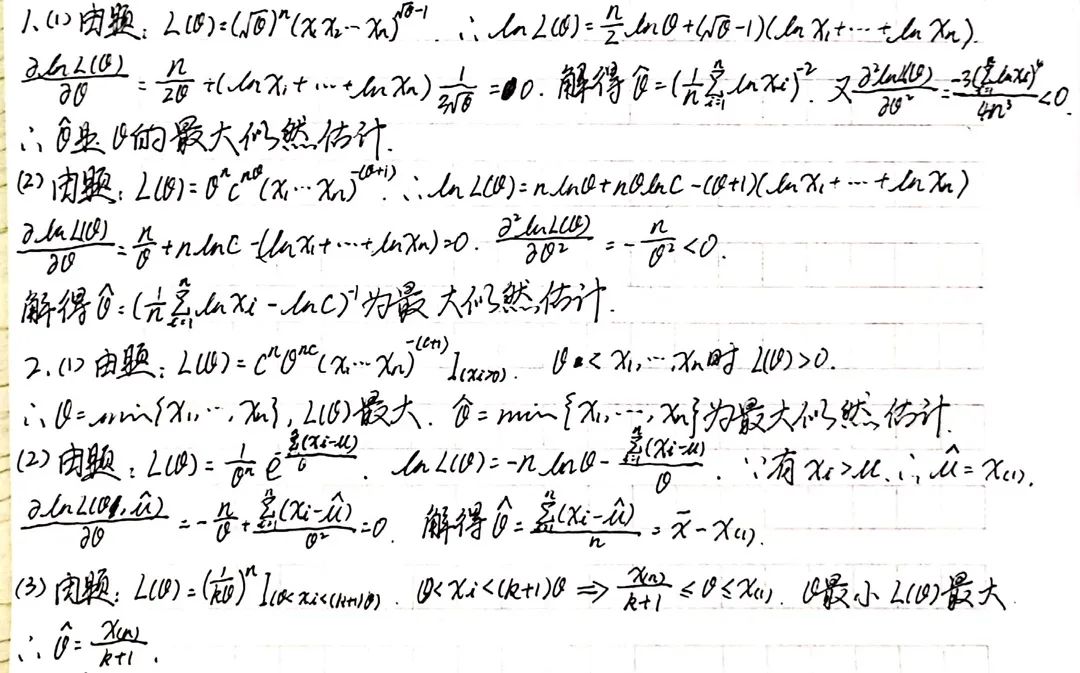 1.(1) 由题：L(θ)=(√θ)ⁿ(x₁x₂⋯xₙ)^(√θ-1). ∴ ln L(θ)=n/2 lnθ+(√θ-1)(ln x₁+⋯+ln xₙ).
∂ln L(θ)/∂θ = n/2θ +(ln x₁+⋯+ln xₙ) 1/2√θ = 0. 解得 θ̂=(1/n Σᵢ₌₁ⁿ ln xᵢ)⁻². 又 ∂²ln L(θ)/∂θ² = -3(Σᵢ₌₁ⁿ ln xᵢ)⁴/4n³ <0.
∴ θ̂是θ的最大似然估计.
(2) 由题：L(θ)=θⁿc^(nθ)(x₁⋯xₙ)^(-(θ+1)). ∴ ln L(θ)=n lnθ+nθ ln c-(θ+1)(ln x₁+⋯+ln xₙ)
∂ln L(θ)/∂θ = n/θ +n ln c -(ln x₁+⋯+ln xₙ)=0. ∂²ln L(θ)/∂θ² = -n/θ² <0.
解得 θ̂=(1/n Σᵢ₌₁ⁿ ln xᵢ - ln c)⁻¹ 为最大似然估计.
2.(1) 由题：L(θ)=cⁿθ^(nc)(x₁⋯xₙ)^(-(c+1)) I(xᵢ>θ). θ< x₁,⋯,xₙ时 L(θ)>0.
∴ θ=min{x₁,⋯,xₙ}, L(θ)最大. θ̂=min{x₁,⋯,xₙ}为最大似然估计.
(2) 由题：L(θ)=1/θⁿ e^(-Σ(xᵢ-μ)/θ). ln L(θ)=-n lnθ-Σᵢ₌₁ⁿ(xᵢ-μ)/θ. ∵有 xᵢ>μ. ∴ μ̂=x₍₁₎.
∂ln L(θ,μ̂)/∂θ = -n/θ+Σᵢ₌₁ⁿ(xᵢ-μ̂)/θ²=0. 解得 θ̂=Σᵢ₌₁ⁿ(xᵢ-μ̂)/n = x̄-x₍₁₎.
(3) 由题：L(θ)=(1/kθ)ⁿ I(θ<xᵢ<(k+1)θ). θ<xᵢ<(k+1)θ ⇒ x₍ₙ₎/k+1 ≤θ≤x₍₁₎. θ最小 L(θ)最大
∴ θ̂=x₍ₙ₎/k+1.